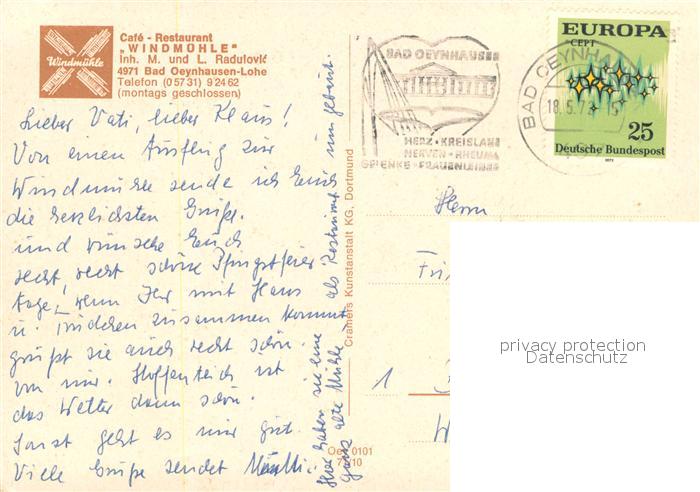 Windmühle
Café - Restaurant
„WINDMÜHLE"
Inh. M. und L. Radulović
4971 Bad Oeynhausen-Lohe
Telefon (05731) 92462
(montags geschlossen)
Lieber Vati, lieber Klaus!
Von einem Ausflug zur
Windmühle sende ich Euch
die herzlichsten Grüße.
und wünsche Euch
recht, recht schöne Pfingstfeier-
tage, wenn Ihr mit Hans
u. zusammen kommt
grüßt sie auch recht schön
von mir. Hoffentlich ist
das Wetter dann schön.
Sonst geht es mir gut.
Viele Grüße sendet
Hier haben sie eine
ganz alte Mühle
als Restaurant umgebaut.
Cramers Kunstanstalt KG, Dortmund
Oe 0101
BAD OEYNHAUSEN
HERZ · KREISLAUF
NERVEN · RHEUMA
GELENKE · FRAUENLEIDEN
BAD OEYNHA
18.5.7
EUROPA
CEPT
25
Deutsche Bundespost
1972
Herrn
Fri
1
W
privacy protection
Datenschutz